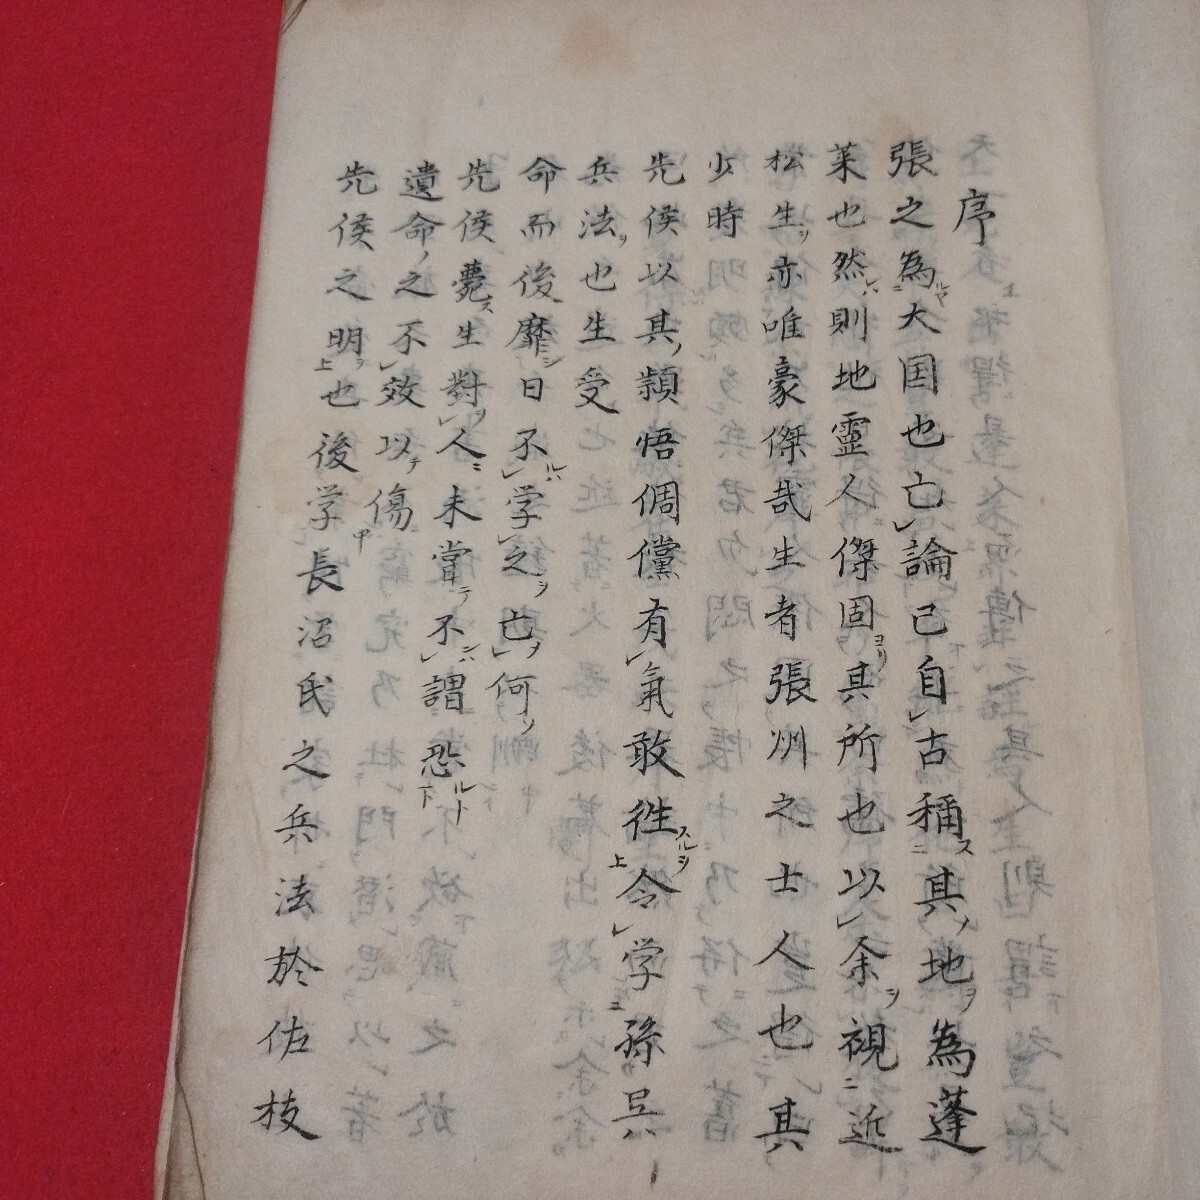 序
張之為大国也亡論已自古稱其地為蓬
莱也然則地靈人傑固其所也以余視近
松生亦唯豪傑哉生者張州之士人也其
少時
先侯以其穎悟倜儻有氣敢徃令学孫呉
兵法也生受
命而後靡日不学之也何
先侯薨生對人未嘗不謂恐
遺命之不效以傷
先侯之明也後学長沼氏之兵法於佐枝